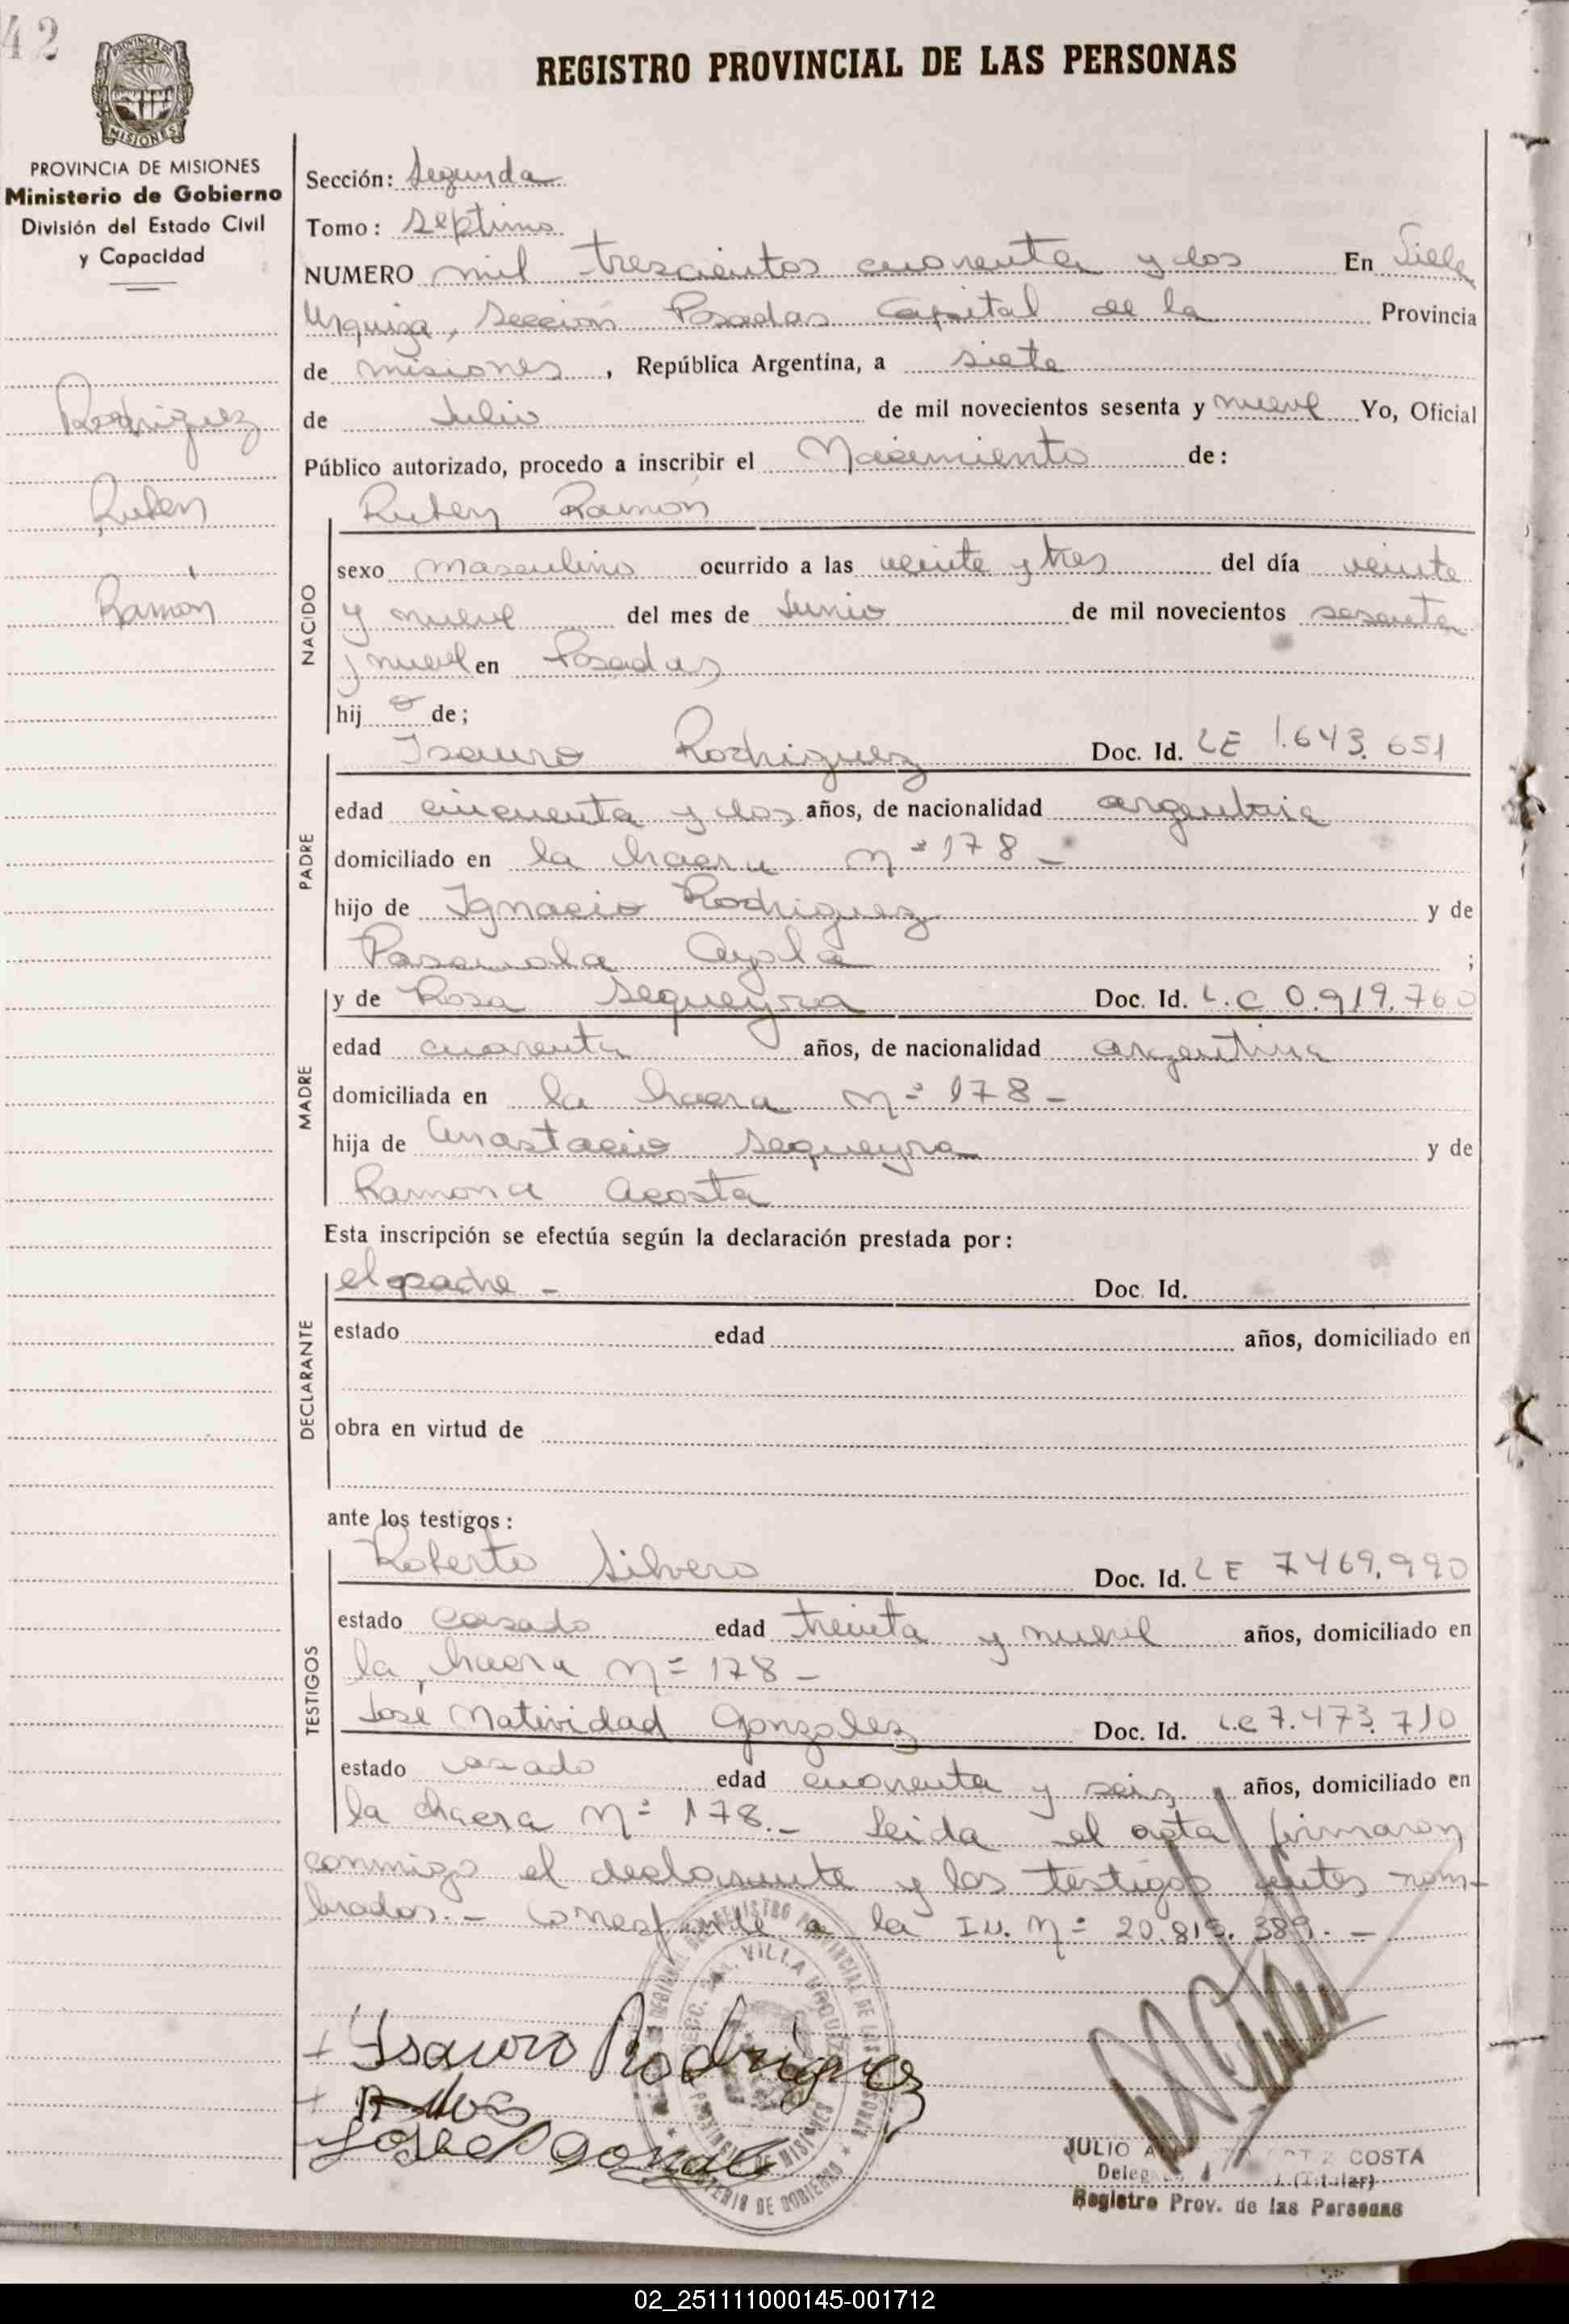 42
REGISTRO PROVINCIAL DE LAS PERSONAS
MISIONES
PROVINCIA DE MISIONES
Ministerio de Gobierno
División del Estado Civil
y Capacidad
Rodriguez
Ruben
Ramón
Sección: Segunda
Tomo: septimo
NUMERO mil trescientos cuarenta y dos En
Urquiza, Sección Posadas Capital de la Provincia
de misiones, República Argentina, a siete
de Julio de mil novecientos sesenta y nueve Yo, Oficial
Público autorizado, procedo a inscribir el Nacimiento de:
Ruben Ramón
NACIDO
sexo masculino ocurrido a las veinte y tres del día veinte
y nueve del mes de Junio de mil novecientos sesenta
y nueve en Posadas
hij o de;
PADRE
Isauro Rodriguez Doc. Id. LE 1.643.651
edad cincuenta y dos años, de nacionalidad argentina
domiciliado en la chacra nº 178 -
hijo de Ignacio Rodriguez y de
Ayala ;
MADRE
y de Rosa Sequeyra Doc. Id. L.C 0.919.760
edad cuarenta años, de nacionalidad argentina
domiciliada en la chacra nº 178 -
hija de Anastacio Sequeyra y de
Ramona Acosta
Esta inscripción se efectúa según la declaración prestada por:
DECLARANTE
el padre - Doc. Id.
estado edad años, domiciliado en
obra en virtud de
ante los testigos:
TESTIGOS
Roberto Silvero Doc. Id. LE 7.469.990
estado casado edad treinta y nueve años, domiciliado en
la chacra nº 178 -
José Natividad Gonzalez Doc. Id. L.E 7.473.710
estado casado edad cuarenta y seis años, domiciliado en
la chacra nº 178.- Leida el acta firmaron
conmigo el declarante y los testigos antes nom-
brados.- Corresponde a la I.U. nº 20.815.389.-
SECC. VILLA URQUIZA
PROVINCIA DE MISIONES
MINISTERIO DE GOBIERNO
Isauro Rodriguez
JULIO COSTA
(Titular)
Registro Prov. de las Personas
02_251111000145-001712